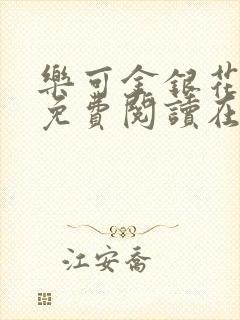 樂可金銀花
免費閱讀在
江安喬